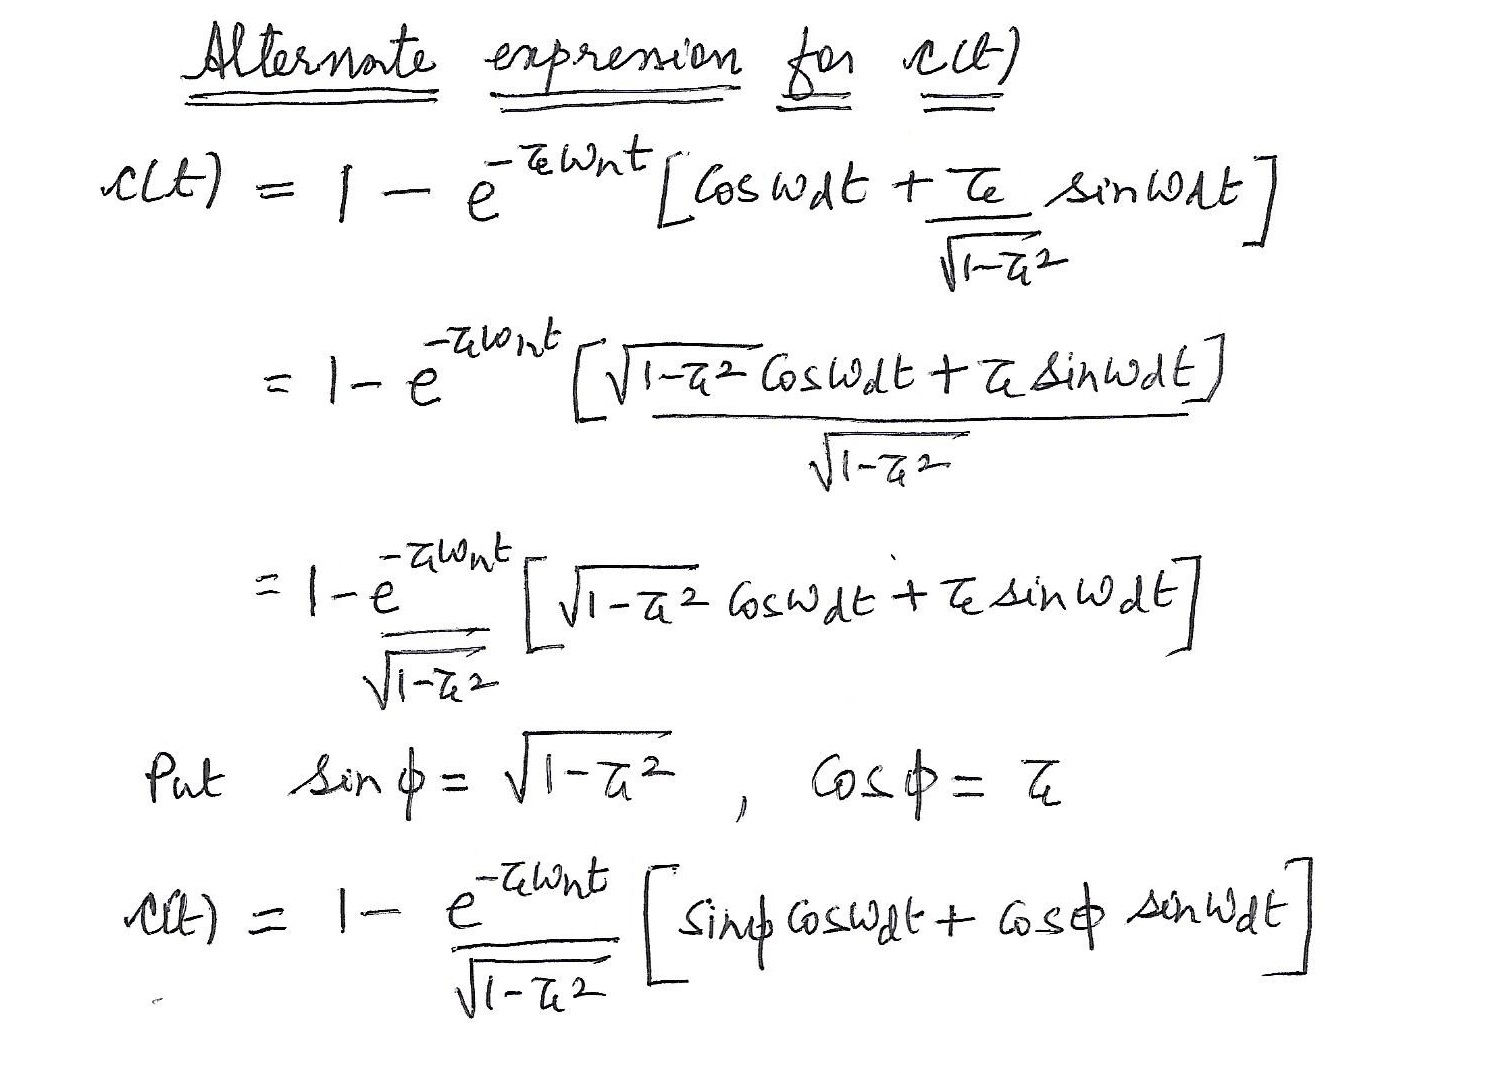 Alternate expression for c(t)
c(t) = 1 - e^{-ζωnt} [cos ωdt + ζ/√(1-ζ²) sin ωdt]
= 1 - e^{-ζωnt} [√(1-ζ²) cos ωdt + ζ sin ωdt] / √(1-ζ²)
= 1 - e^{-ζωnt}/√(1-ζ²) [√(1-ζ²) cos ωdt + ζ sin ωdt]
Put sin ϕ = √(1-ζ²) , cos ϕ = ζ
c(t) = 1 - e^{-ζωnt}/√(1-ζ²) [sin ϕ cos ωdt + cos ϕ sin ωdt]